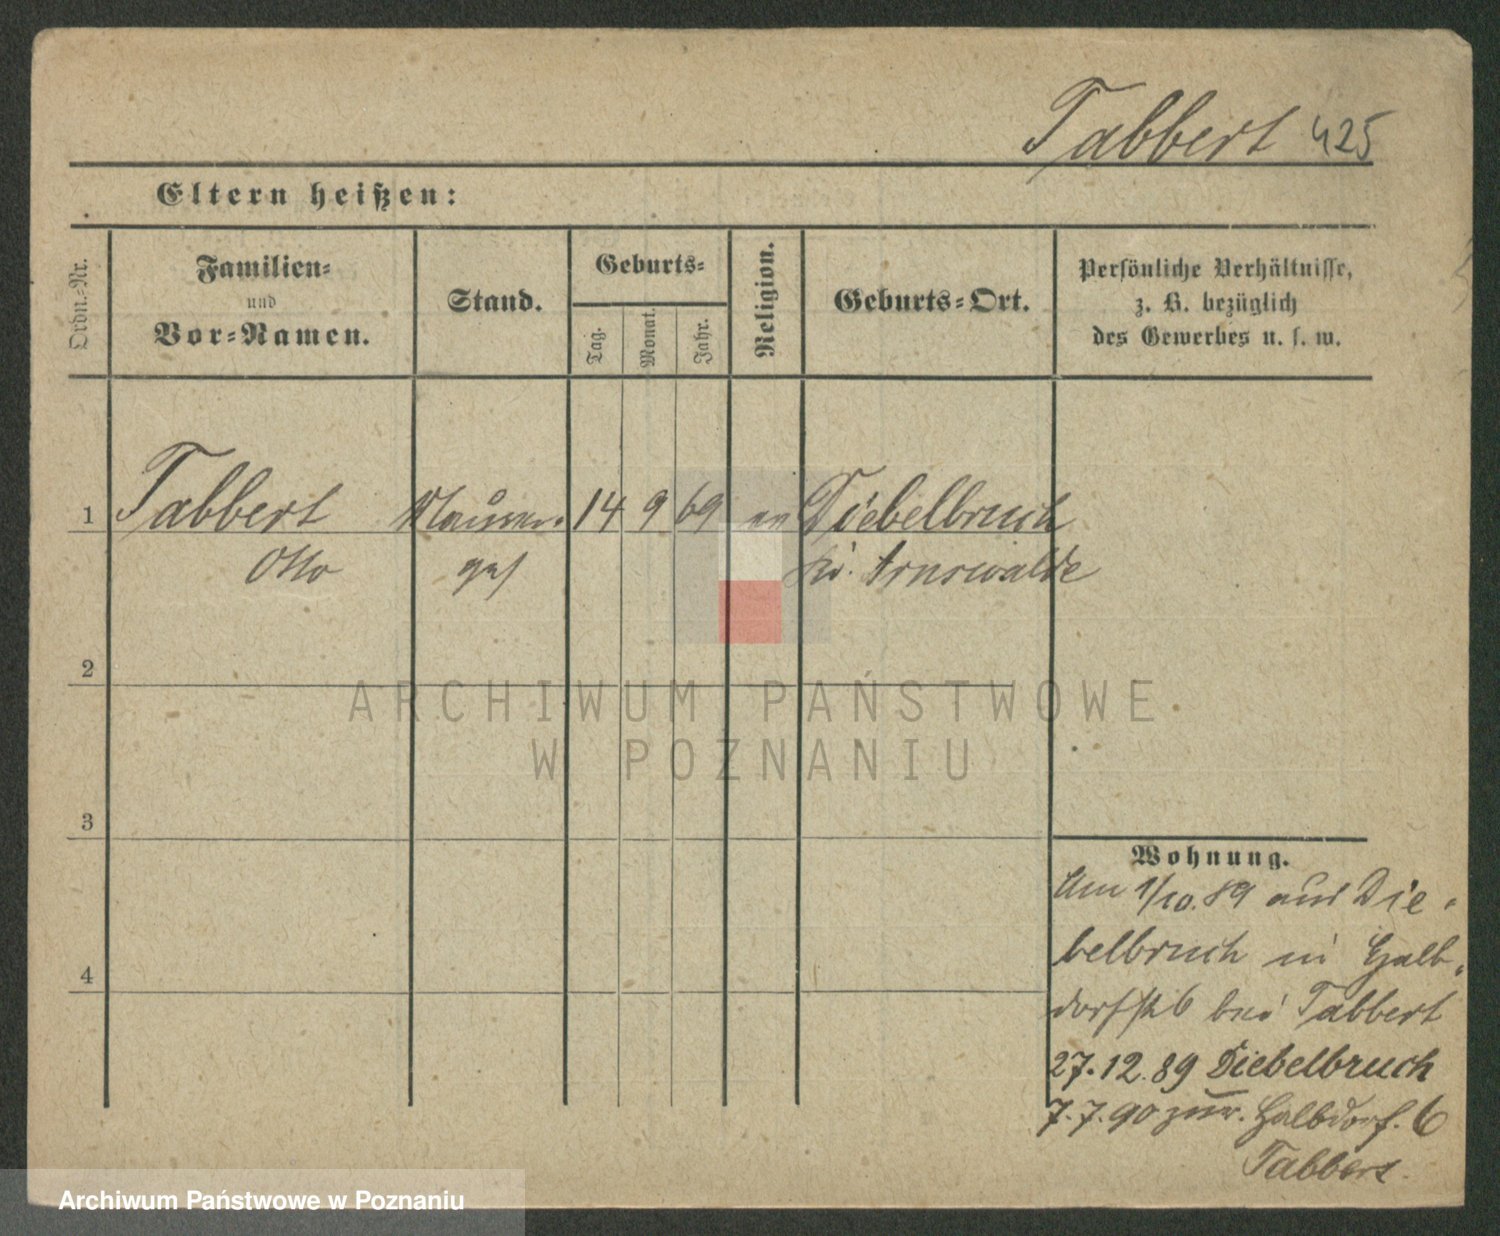 Tabbert 425
Eltern heißen:
Ordn.-Nr.
Familien-
und
Vor-Namen.
Stand.
Geburts-
Tag.
Monat.
Jahr.
Religion.
Geburts-Ort.
Persönliche Verhältnisse,
z. B. bezüglich
des Gewerbes u. s. w.
1 Tabbert Maurer- 14 9 69 ev Diebelbruch
Otto ges Kr. Arnswalde
2
3
4
Wohnung.
Am 1/10.89 aus Die-
belbruch in Halb-
dorfst 6 bei Tabbert
27.12.89 Diebelbruch
7.7.90 zur. Halbdorf. 6
Tabbert.
ARCHIWUM PAŃSTWOWE
W POZNANIU
Archiwum Państwowe w Poznaniu